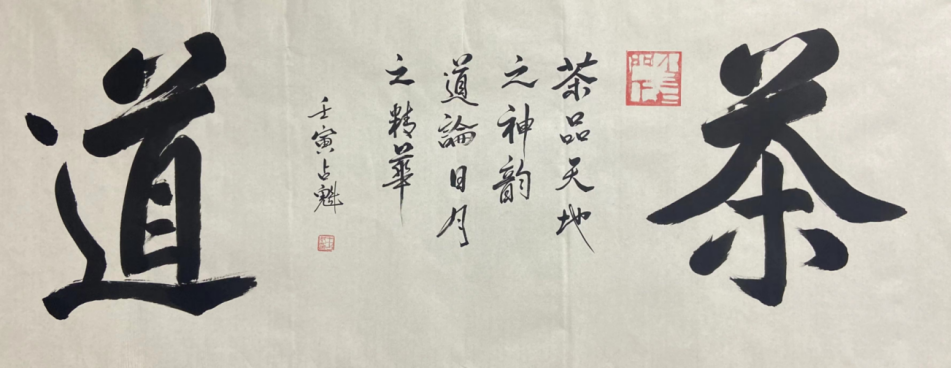 茶
茶品天地
之神韵
道論日月
之精華
壬寅占魁
道